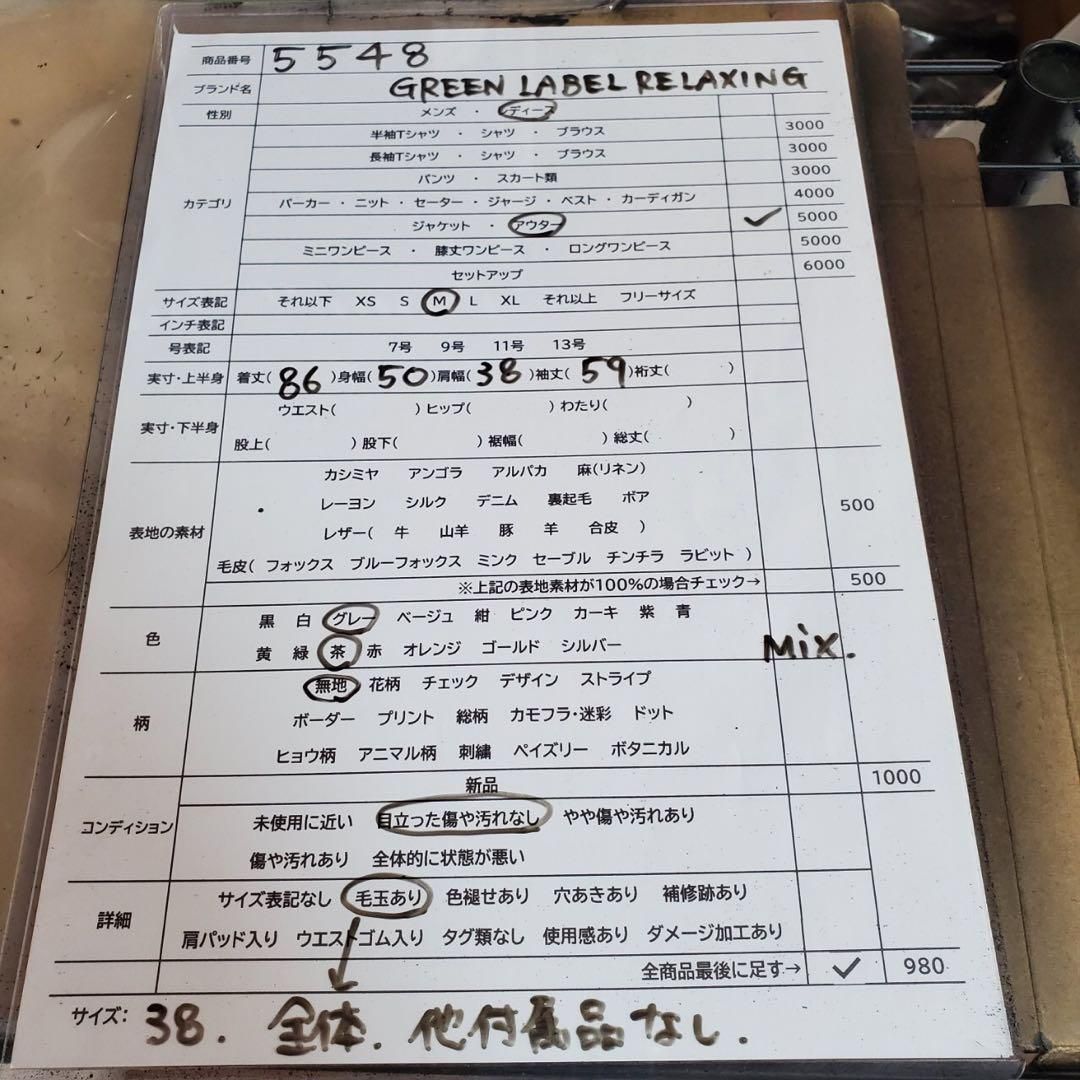 商品番号 5548
ブランド名 GREEN LABEL RELAXING
性別 メンズ ・ レディース
半袖Tシャツ ・ シャツ ・ ブラウス 3000
長袖Tシャツ ・ シャツ ・ ブラウス 3000
パンツ ・ スカート類 3000
カテゴリ パーカー ・ ニット ・ セーター ・ ジャージ ・ ベスト ・ カーディガン 4000
ジャケット ・ アウター ✓ 5000
ミニワンピース ・ 膝丈ワンピース ・ ロングワンピース 5000
セットアップ 6000
サイズ表記 それ以下 XS S M L XL それ以上 フリーサイズ
インチ表記
号表記 7号 9号 11号 13号
実寸・上半身 着丈(86)身幅(50)肩幅(38)袖丈(59)裄丈( )
ウエスト( )ヒップ( )わたり( )
実寸・下半身
股上( )股下( )裾幅( )総丈( )
カシミヤ アンゴラ アルパカ 麻(リネン)
レーヨン シルク デニム 裏起毛 ボア 500
表地の素材 レザー( 牛 山羊 豚 羊 合皮 )
毛皮( フォックス ブルーフォックス ミンク セーブル チンチラ ラビット )
※上記の表地素材が100%の場合チェック→ 500
黒 白 グレー ベージュ 紺 ピンク カーキ 紫 青
色
黄 緑 茶 赤 オレンジ ゴールド シルバー Mix.
無地 花柄 チェック デザイン ストライプ
柄 ボーダー プリント 総柄 カモフラ・迷彩 ドット
ヒョウ柄 アニマル柄 刺繍 ペイズリー ボタニカル
新品 1000
コンディション 未使用に近い 目立った傷や汚れなし やや傷や汚れあり
傷や汚れあり 全体的に状態が悪い
サイズ表記なし 毛玉あり 色褪せあり 穴あきあり 補修跡あり
詳細
肩パッド入り ウエストゴム入り タグ類なし 使用感あり ダメージ加工あり
全商品最後に足す→ ✓ 980
サイズ: 38. 全体. 他付属品なし.